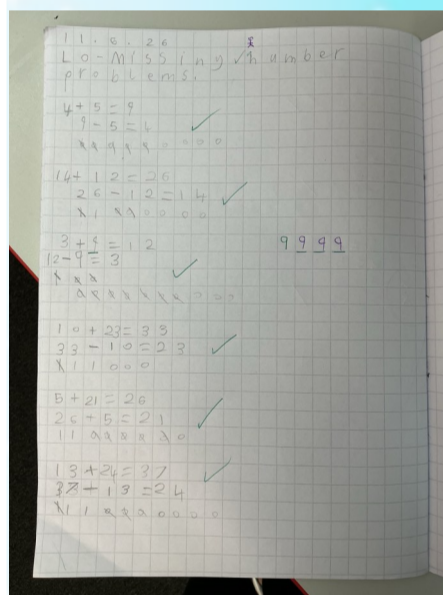 11.6.26
LO-Missing number
problems.
4+5=9
9-5=4
14+12=26
26-12=14
3+9=12
9 9 9 9
12-9=3
10+23=33
33-10=23
5+21=26
26-5=21
13+24=37
37-13=24